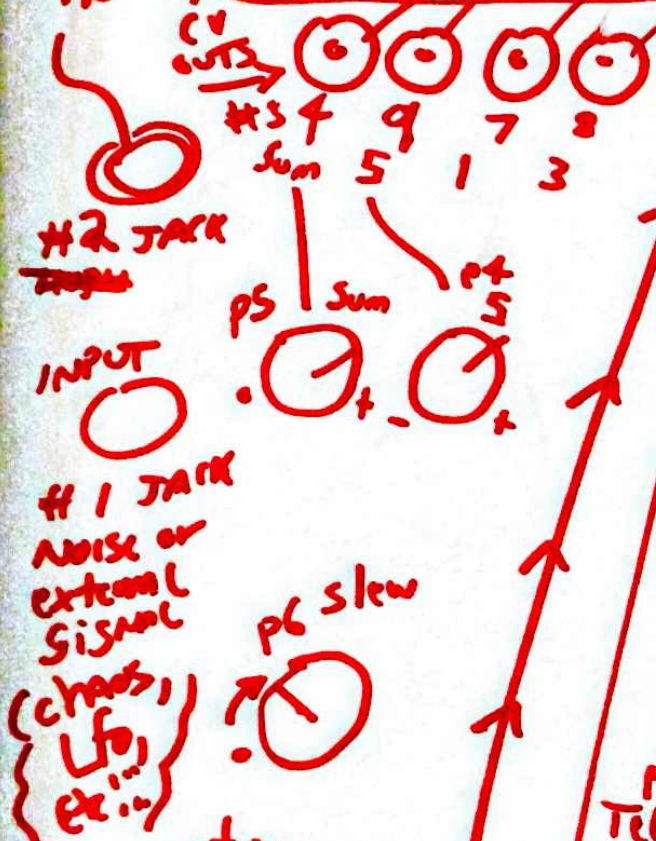 CV
OUTS
#s 4 9 7 8
Sum 5 1 3
#2 JACK
p5 Sum
p4
5
- +
- +
INPUT
#1 JACK
NOISE or
external
SIGNAL
(chaos,
Lfo,
etc...)
p6 Slew